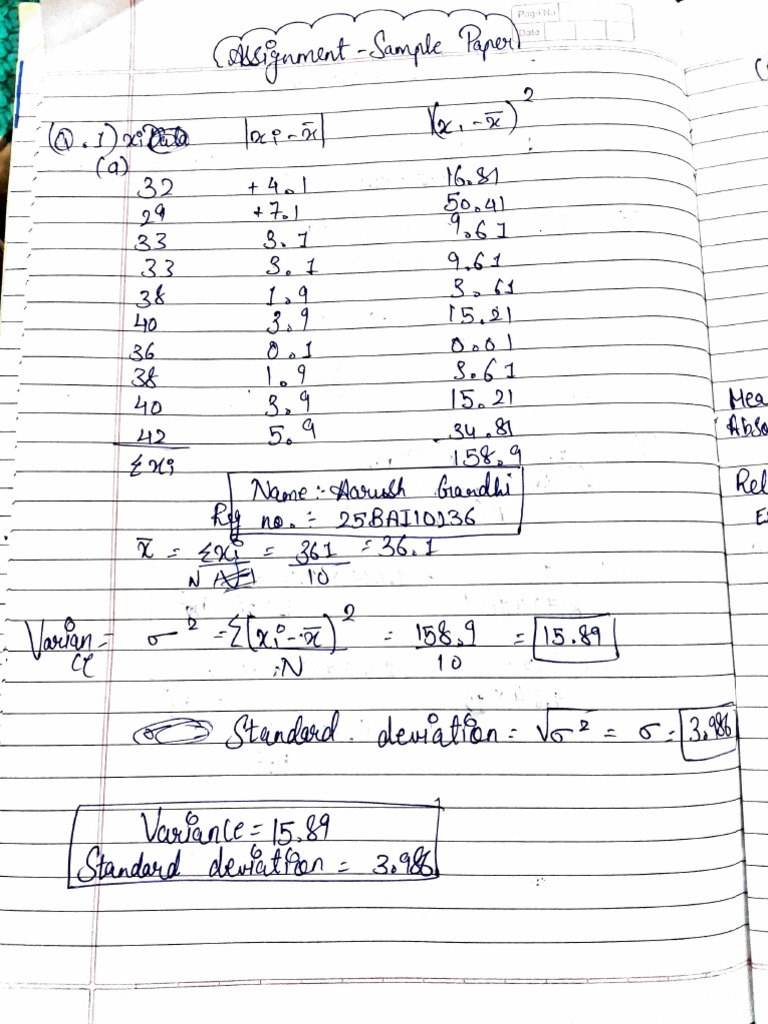 Page No
Date
Assignment - Sample Paper
(Q.1) xi |xi - x̄| (xi - x̄)²
(a)
32 +4.1 16.81
29 +7.1 50.41
33 3.1 9.61
33 3.1 9.61
38 1.9 3.61
40 3.9 15.21
36 0.1 0.01
38 1.9 3.61
40 3.9 15.21
42 5.9 34.81
Σxi 158.9
Name :- Aarush Gandhi
Reg no. :- 25BAI10136
x̄ = Σxi / N = 361 / 10 = 36.1
Varian- = σ² = Σ(xi - x̄)² / N = 158.9 / 10 = 15.89
ce
Standard deviation = √σ² = σ = 3.986
Variance = 15.89
Standard deviation = 3.986
Mea
Abso
Rel